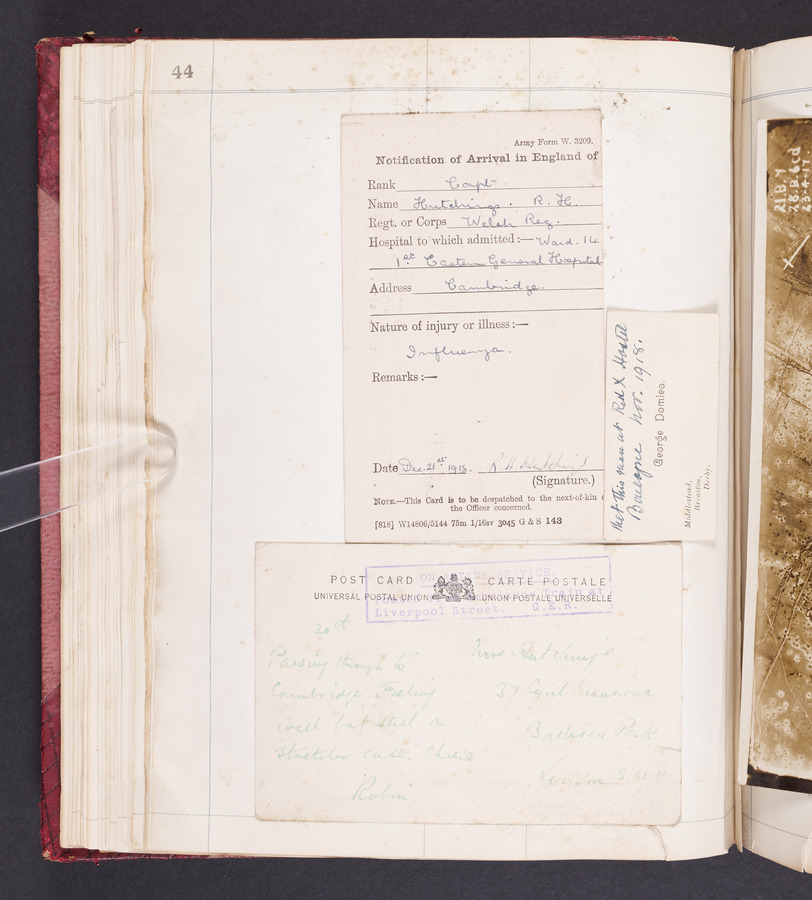 44
Army Form W. 3209.
Notification of Arrival in England of
Rank Capt.
Name Hutchings. R. H.
Regt. or Corps Welsh Reg.
Hospital to which admitted:— Ward. 14
1st Eastern General Hospital
Address Cambridge.
Nature of injury or illness:—
Influenza.
Remarks:—
Date Dec. 21st 1918. R H Hutchings
(Signature.)
NOTE.—This Card is to be despatched to the next-of-kin
the Officer concerned.
[818] W14806/5144 75m 1/16sv 3045 G & S 143
Met this man at Red X Hostel
Boulogne Nov. 1918.
George Domleo.
Middlestead,
Breaston,
Derby.
POST CARD CARTE POSTALE
UNIVERSAL POSTAL UNION UNION POSTALE UNIVERSELLE
ON ACTIVE SERVICE.
Train at
Liverpool Street. G.E.R.
20th
Passing through to
Cambridge Feeling
well but still a
stretcher case. Cheerio
Robin
Mrs Hutchings
37 Cyril Mansions
Battersea Park
London S W 11
21 B.4
28.B.6cd
23.4.1